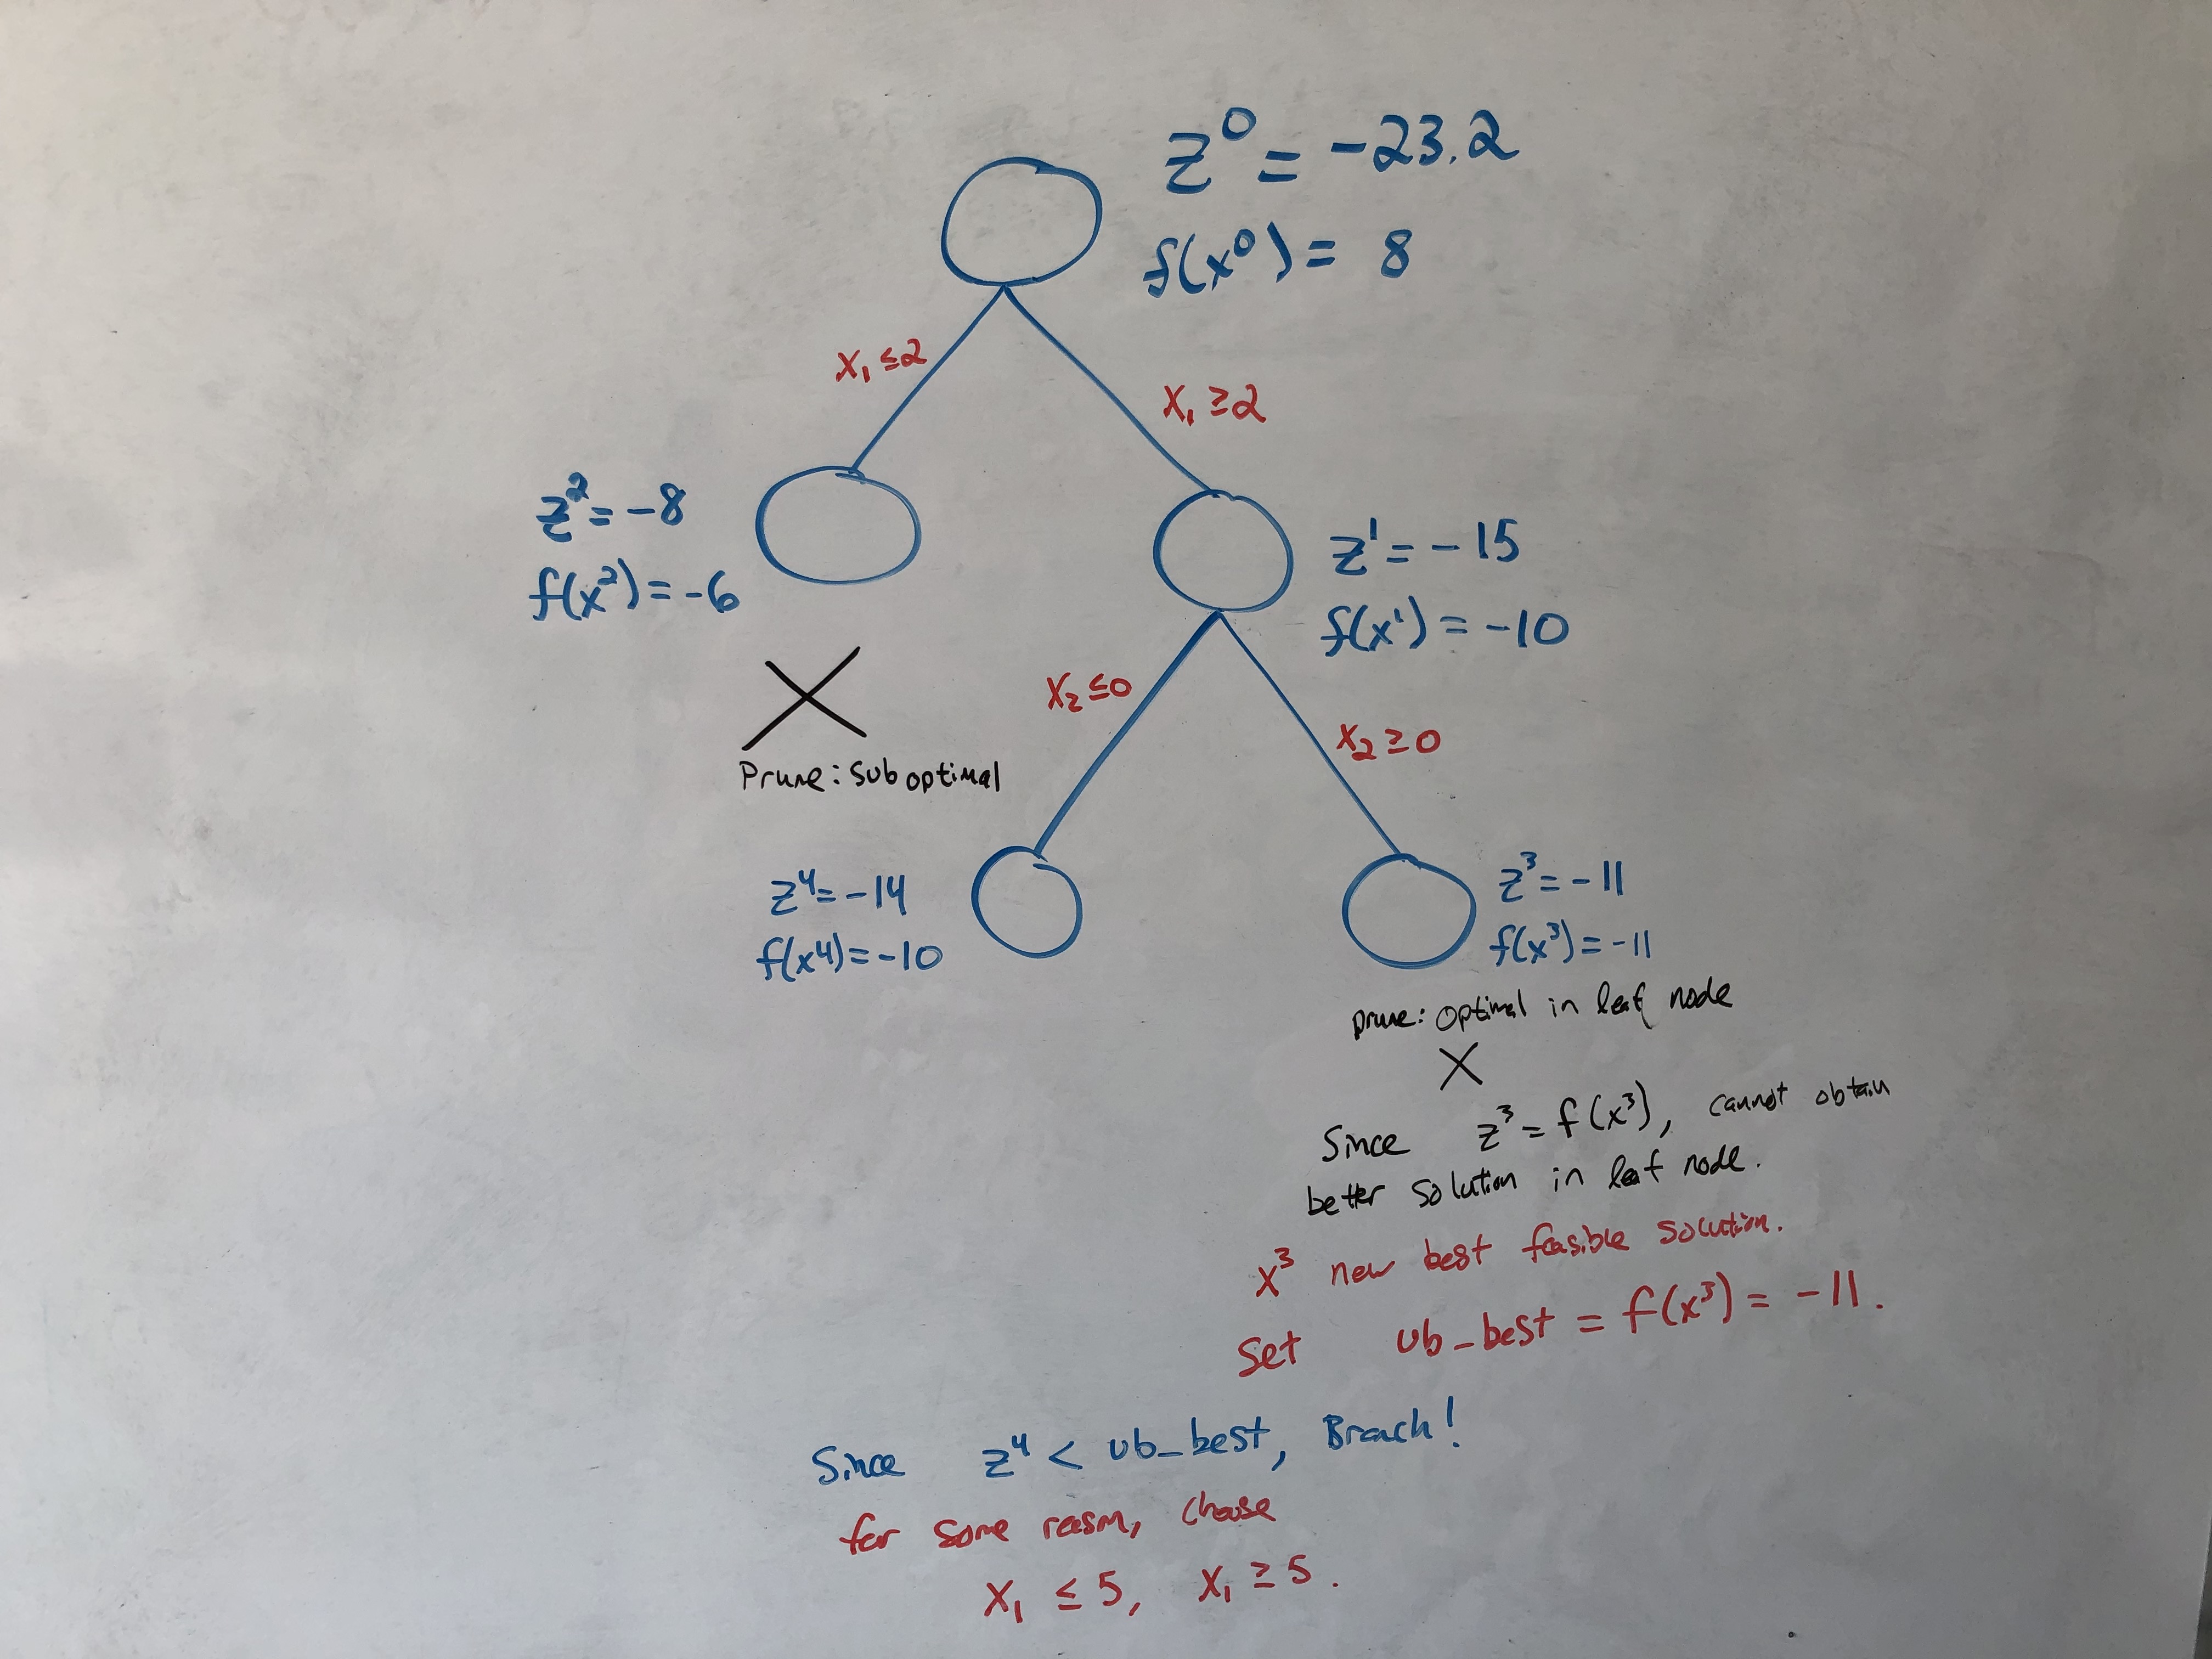 z⁰ = -23.2
f(x⁰) = 8
x₁ ≤ 2
x₁ ≥ 2
z² = -8
f(x²) = -6
z¹ = -15
f(x¹) = -10
Prune: Sub optimal
x₂ ≤ 0
x₂ ≥ 0
z⁴ = -14
f(x⁴) = -10
z³ = -11
f(x³) = -11
prune: optimal in leaf node
Since z³ = f(x³), cannot obtain
better solution in leaf node.
x³ new best feasible solution.
Set ub_best = f(x³) = -11.
Since z⁴ < ub_best, Branch!
for some reason, choose
x₁ ≤ 5, x₁ ≥ 5.